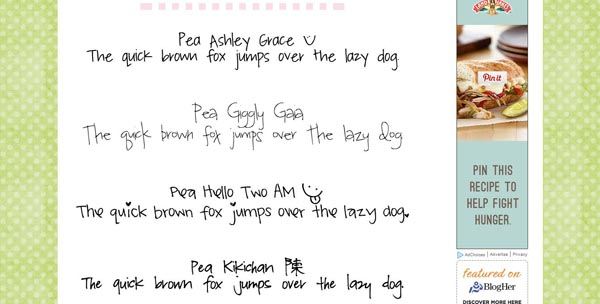 Pea Ashley Grace
The quick brown fox jumps over the lazy dog
Pea Giggly Gaia
The quick brown fox jumps over the lazy dog
Pea Hello Two AM
The quick brown fox jumps over the lazy dog.
Pea Kikichan 陳
The quick brown fox jumps over the lazy dog.
Pin it
PIN THIS
RECIPE TO
HELP FIGHT
HUNGER.
AdChoices | Advertise | Privacy
featured on
BlogHer
DISCOVER MORE HERE